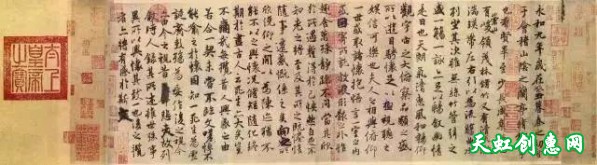 永和九年歲在癸丑暮春之初會
于會稽山陰之蘭亭脩稧事
也羣賢畢至少長咸集此地
有崇山峻領茂林脩竹又有清流激
湍暎帶左右引以為流觴曲水
列坐其次雖無絲竹管弦之
盛一觴一詠亦足以暢敘幽情
是日也天朗氣清惠風和暢仰
觀宇宙之大俯察品類之盛
所以遊目騁懷足以極視聽之
娛信可樂也夫人之相與俯仰
一世或取諸懷抱悟言一室之內
或因寄所託放浪形骸之外雖
趣舍萬殊靜躁不同當其欣
於所遇蹔得於己快然自足不
知老之將至及其所之既惓情
隨事遷感慨係之矣向之所
欣俛仰之閒以為陳迹猶不
能不以之興懷況脩短隨化終
期於盡古人云死生亦大矣豈
不痛哉每攬昔人興感之由
若合一契未嘗不臨文嗟悼不
能喻之於懷固知一死生為虛
誕齊彭殤為妄作後之視今
亦由今之視昔悲夫故列
敘時人錄其所述雖世殊事
異所以興懷其致一也後之攬
者亦將有感於斯文
太上皇帝之寶
天虹创意网